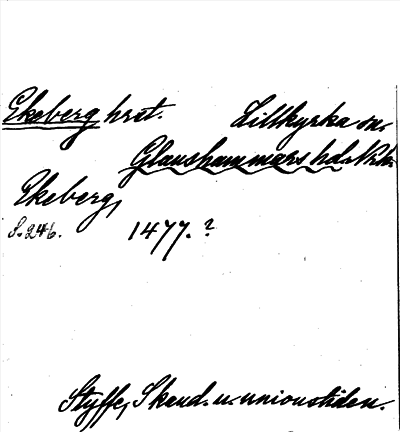 Ekeberg hrst. Lillkyrka sn.
Glanshammars hd. Nrk.
Ekeberg,
S. 246. 1477.?
Styffe, Skand. u. unionstiden.